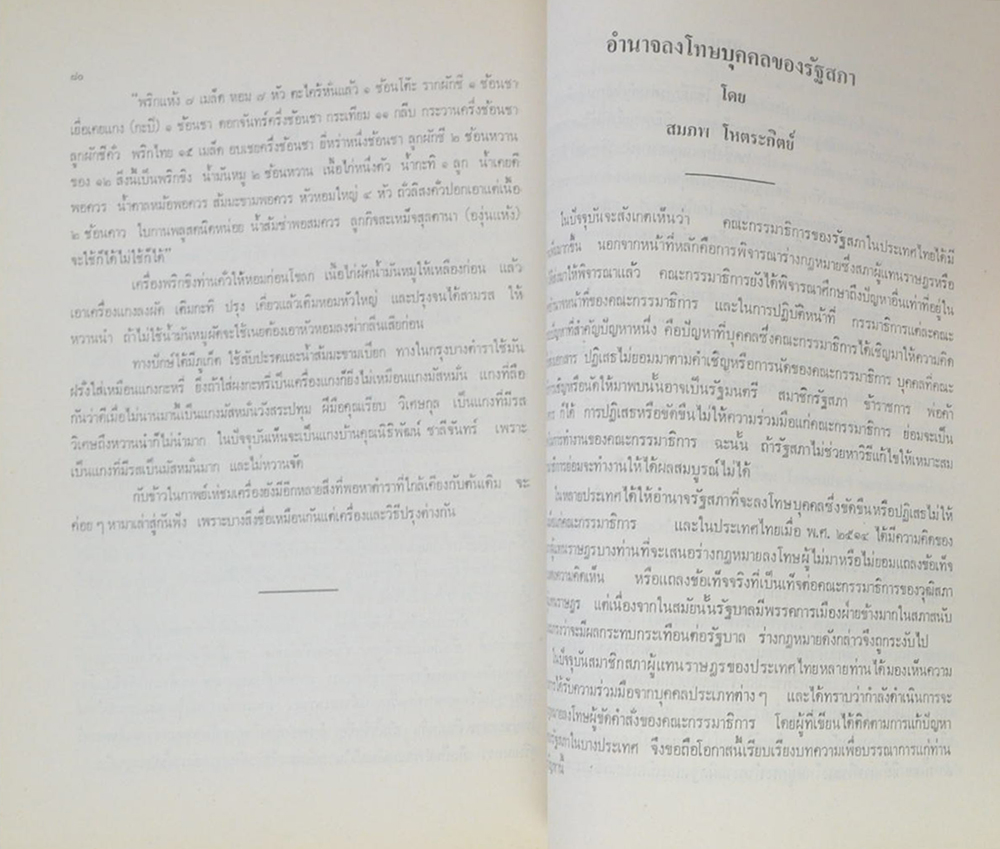 ๘๐
"พริกแห้ง ๗ เมล็ด หอม ๗ หัว ตะไคร้หั่นแล้ว ๑ ช้อนโต๊ะ รากผักชี ๑ ช้อนชา
เยื่อเคยแกง (กะปิ) ๑ ช้อนชา ดอกจันทร์ครึ่งช้อนชา กระเทียม ๑๑ กลีบ กระวานครึ่งช้อนชา
ลูกผักชีคั่ว พริกไทย ๑๕ เมล็ด อบเชยครึ่งช้อนชา ยี่หร่าหนึ่งช้อนชา ลูกผักชี ๒ ช้อนหวาน
ของ ๑๒ สิ่งนี้เป็นพริกขิง น้ำมันหมู ๒ ช้อนหวาน เนื้อไก่หนึ่งตัว น้ำกะทิ ๑ ลูก น้ำเคยดี
พอควร น้ำตาลหม้อพอควร ส้มมะขามพอควร หัวหอมใหญ่ ๔ หัว ถั่วลิสงคั่วปอกเอาแต่เนื้อ
๒ ช้อนคาว ใบกานพลูสดนิดหน่อย น้ำส้มซ่าพอสมควร ลูกกิจสะเหม็จสุลตานา (องุ่นแห้ง)
จะใช้ก็ได้ไม่ใช้ก็ได้"
เครื่องพริกขิงท่านคั่วให้หอมก่อนโขลก เนื้อไก่ผัดน้ำมันหมูให้เหลืองก่อน แล้ว
เอาเครื่องแกงลงผัด เติมกะทิ ปรุง เคี่ยวแล้วเติมหอมหัวใหญ่ และปรุงจนได้สามรส ให้
หวานนำ ถ้าไม่ใช้น้ำมันหมูผัดจะใช้เนยต้องเอาหัวหอมลงฆ่ากลิ่นเสียก่อน
ทางปักษ์ใต้มีภูเก็ต ใช้สับปะรดและน้ำส้มมะขามเปียก ทางในกรุงบางตำราใช้มัน
ฝรั่งใส่เหมือนแกงกะหรี่ ยิ่งถ้าใส่ผงกะหรี่เป็นเครื่องแกงก็ยิ่งไม่เหมือนแกงมัสหมั่น แกงที่ลือ
กันว่าดีเมื่อไม่นานมานี้เป็นแกงมัสหมั่นวังสระปทุม ฝีมือคุณเรียบ วิเศษกุล เป็นแกงที่มีรส
วิเศษถึงหวานนำก็ไม่นำมาก ในปัจจุบันเห็นจะเป็นแกงบ้านคุณนิธิพัฒน์ ชาลีจันทร์ เพราะ
เป็นแกงที่มีรสเป็นมัสหมั่นมาก และไม่หวานจัด
กับข้าวในกาพย์เห่ชมเครื่องยังมีอีกหลายสิ่งที่พอหาตำราที่ใกล้เคียงกับต้นเดิม จะ
ค่อย ๆ หามาเล่าสู่กันฟัง เพราะบางสิ่งชื่อเหมือนกันแต่เครื่องและวิธีปรุงต่างกัน
อำนาจลงโทษบุคคลของรัฐสภา
โดย
สมภพ โหตระกิตย์
ในปัจจุบันจะสังเกตเห็นว่า คณะกรรมาธิการของรัฐสภาในประเทศไทยได้มี
มากขึ้น นอกจากหน้าที่หลักคือการพิจารณาร่างกฎหมายซึ่งสภาผู้แทนราษฎรหรือ
มาให้พิจารณาแล้ว คณะกรรมาธิการยังได้พิจารณาศึกษาถึงปัญหาอื่นเท่าที่อยู่ใน
หน้าที่ของคณะกรรมาธิการ และในการปฏิบัติหน้าที่ กรรมาธิการแต่ละคณะ
ที่สำคัญปัญหาหนึ่ง คือปัญหาที่บุคคลซึ่งคณะกรรมาธิการได้เชิญมาให้ความคิด
ปฏิเสธไม่ยอมมาตามคำเชิญหรือการนัดของคณะกรรมาธิการ บุคคลที่คณะ
หรือนัดให้มาพบนั้นอาจเป็นรัฐมนตรี สมาชิกรัฐสภา ข้าราชการ พ่อค้า
ก็ได้ การปฏิเสธหรือขัดขืนไม่ให้ความร่วมมือแก่คณะกรรมาธิการ ย่อมจะเป็น
การทำงานของคณะกรรมาธิการ ฉะนั้น ถ้ารัฐสภาไม่ช่วยหาวิธีแก้ไขให้เหมาะสม
ย่อมจะทำงานให้ได้ผลสมบูรณ์ไม่ได้
ในหลายประเทศได้ให้อำนาจรัฐสภาที่จะลงโทษบุคคลซึ่งขัดขืนหรือปฏิเสธไม่ให้
แก่คณะกรรมาธิการ และในประเทศไทยเมื่อ พ.ศ. ๒๕๑๔ ได้มีความคิดของ
ผู้แทนราษฎรบางท่านที่จะเสนอร่างกฎหมายลงโทษผู้ไม่มาหรือไม่ยอมแถลงข้อเท็จ
ความคิดเห็น หรือแถลงข้อเท็จจริงที่เป็นเท็จต่อคณะกรรมาธิการของวุฒิสภา
ราษฎร แต่เนื่องจากในสมัยนั้นรัฐบาลมีพรรคการเมืองฝ่ายข้างมากในสภาสนับ
ว่าจะมีผลกระทบกระเทือนต่อรัฐบาล ร่างกฎหมายดังกล่าวจึงถูกระงับไป
ในปัจจุบันสมาชิกสภาผู้แทนราษฎรของประเทศไทยหลายท่านได้มองเห็นความ
ได้รับความร่วมมือจากบุคคลประเภทต่าง ๆ และได้ทราบว่ากำลังดำเนินการจะ
ลงโทษผู้ขัดคำสั่งของคณะกรรมาธิการ โดยผู้ที่เขียนได้ติดตามการแก้ปัญหา
ในบางประเทศ จึงขอถือโอกาสนี้เรียบเรียงบทความเพื่อบรรณาการแก่ท่าน